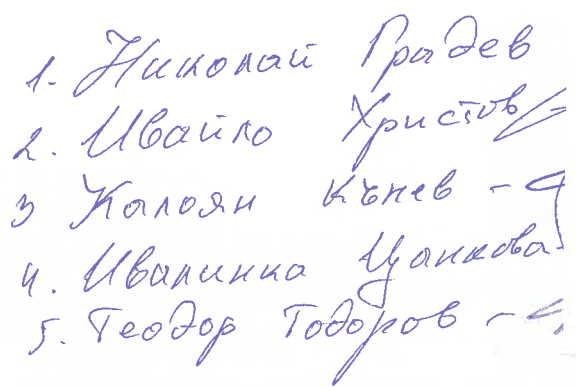 1. Николай Градев
2. Ивайло Христов
3 Калоян Кънев -
4. Ивалинка Цанкова
5. Теодор Тодоров -